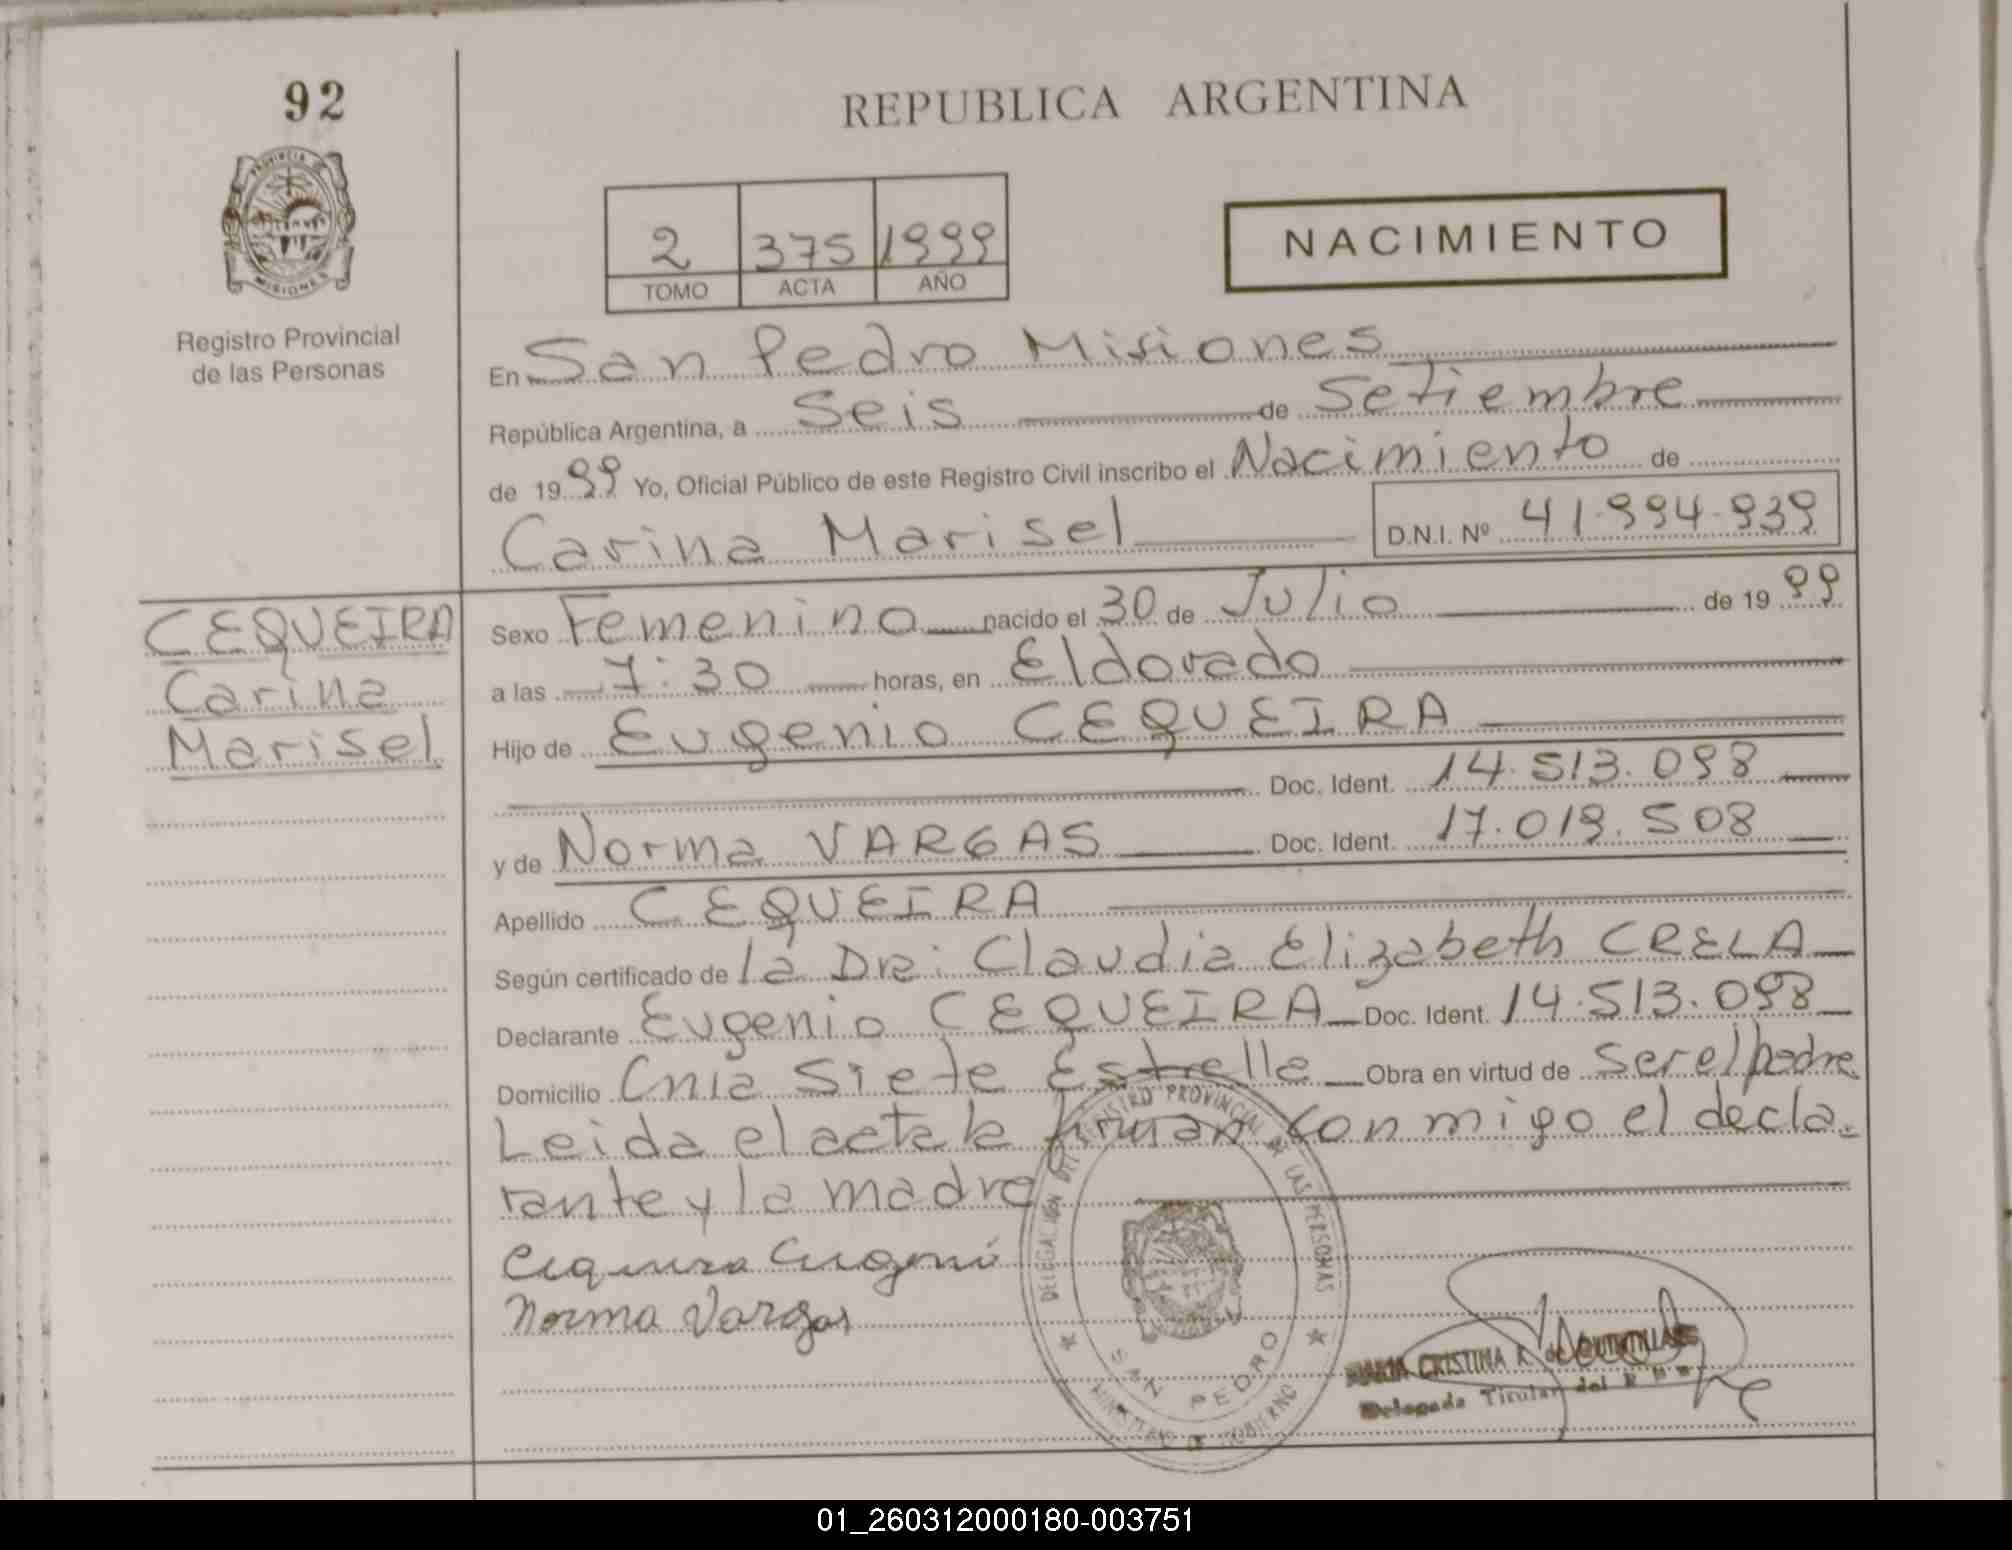 92
REPUBLICA ARGENTINA
PROVINCIA DE
MISIONES
2 375 1999
TOMO ACTA AÑO
NACIMIENTO
Registro Provincial
de las Personas
En San Pedro Misiones
República Argentina, a Seis de Setiembre
de 1999 Yo, Oficial Público de este Registro Civil inscribo el Nacimiento de
Carina Marisel D.N.I. Nº 41.994.939
CEQUEIRA
Carina
Marisel
Sexo Femenino nacido el 30 de Julio de 1999
a las 7:30 horas, en Eldorado
Hijo de Eugenio CEQUEIRA
Doc. Ident. 14.513.098
y de Norma VARGAS Doc. Ident. 17.019.508
Apellido CEQUEIRA
Según certificado de la Dra: Claudia Elizabeth CRELA
Declarante Eugenio CEQUEIRA Doc. Ident. 14.513.098
Domicilio Cnia Siete Estrella Obra en virtud de ser el padre
Leida el acta la firman con migo el decla-
rante y la madre
Cequeira Eugenio
Norma Vargas
DELEGACIÓN DEL REGISTRO PROVINCIAL DE LAS PERSONAS
SAN PEDRO
MINISTERIO DE GOBIERNO
CRISTINA R. de
Delegada Titular del
01_260312000180-003751